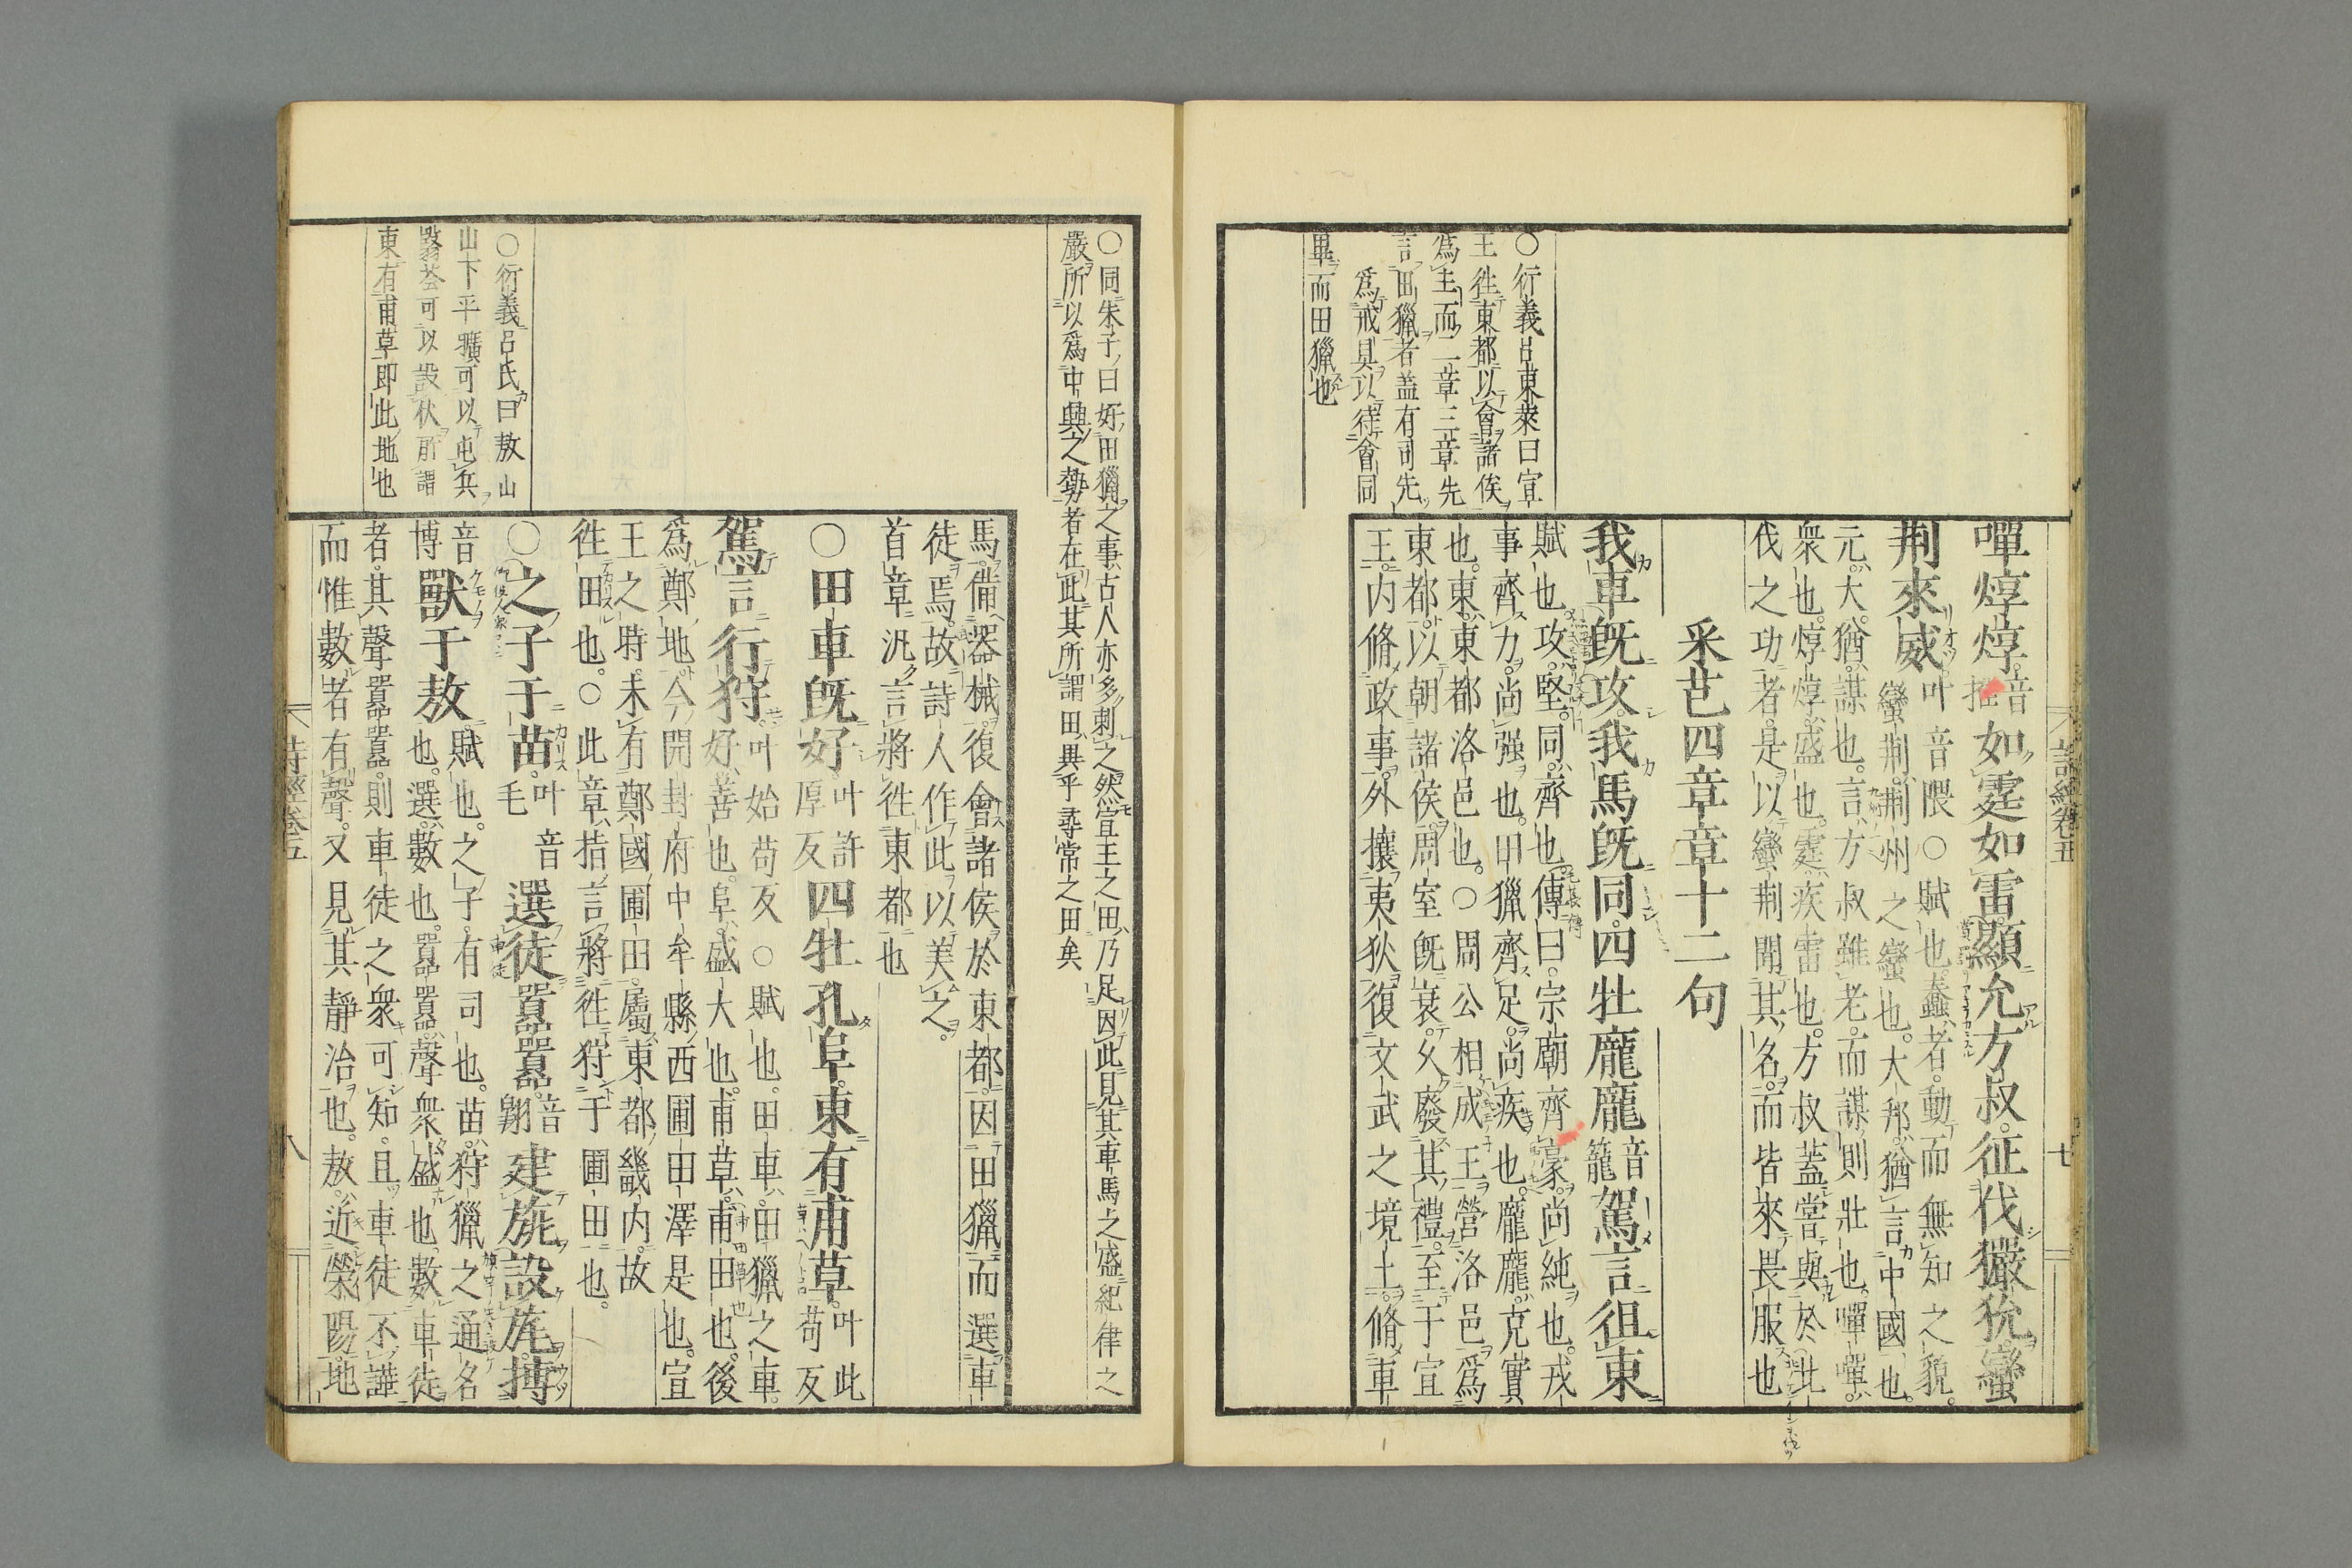 詩經卷五
七
○衍義呂東萊曰宣
王徃東都以會諸侯
爲主而二章三章先
言田獵者蓋有司先
爲戒具以待會同
畢而田獵也
嘽焞焞音推如霆如雷顯允方叔征伐玁狁蠻
荆來威叶音隈○賦也蠢者動而無知之貌
蠻荆荆州之蠻也大邦猶言中國也
元大猶謀也言方叔雖老而謀則壯也嘽嘽
衆也焞焞盛也霆疾雷也方叔蓋嘗與於北
伐之功者是以蠻荆聞其名而皆來畏服也
采芑四章章十二句
我車旣攻我馬旣同四牡龐龐音籠駕言徂東
賦也攻堅同齊也傳曰宗廟齊豪尚純也戎
事齊力尚强也田獵齊足尚疾也龐龐充實
也東東都洛邑也○周公相成王營洛邑爲
東都以朝諸侯周室旣衰久廢其禮至于宣
王内脩政事外攘夷狄復文武之境土脩車
○同朱子曰好田獵之事古人亦多刺之然宣王之田乃足因此見其車馬之盛紀律之
嚴所以爲中興之勢者在此其所謂田異乎尋常之田矣
○衍義呂氏曰敖山
山下平曠可以屯兵
翳薈可以設伏所謂
東有甫草即此地也
馬備器械復會諸侯於東都因田獵而選車
徒焉故詩人作此以美之
首章汎言將徃東都也
○田車旣好叶許厚反四牡孔阜東有甫草叶此苟反
駕言行狩叶始苟反○賦也田車田獵之車
好善也阜盛大也甫草甫田也後
爲鄭地今開封府中牟縣西圃田澤是也宣
王之時未有鄭國圃田屬東都畿内故
徃田也○此章指言將徃狩于圃田也
○之子于苗叶音毛選徒囂囂音翺建旐設旄搏
音博獸于敖賦也之子有司也苗狩獵之通名
也選數也囂囂聲衆盛也數車徒
者其聲囂囂則車徒之衆可知且車徒不譁
而惟數者有聲又見其靜治也敖近滎陽地
詩經卷五
八